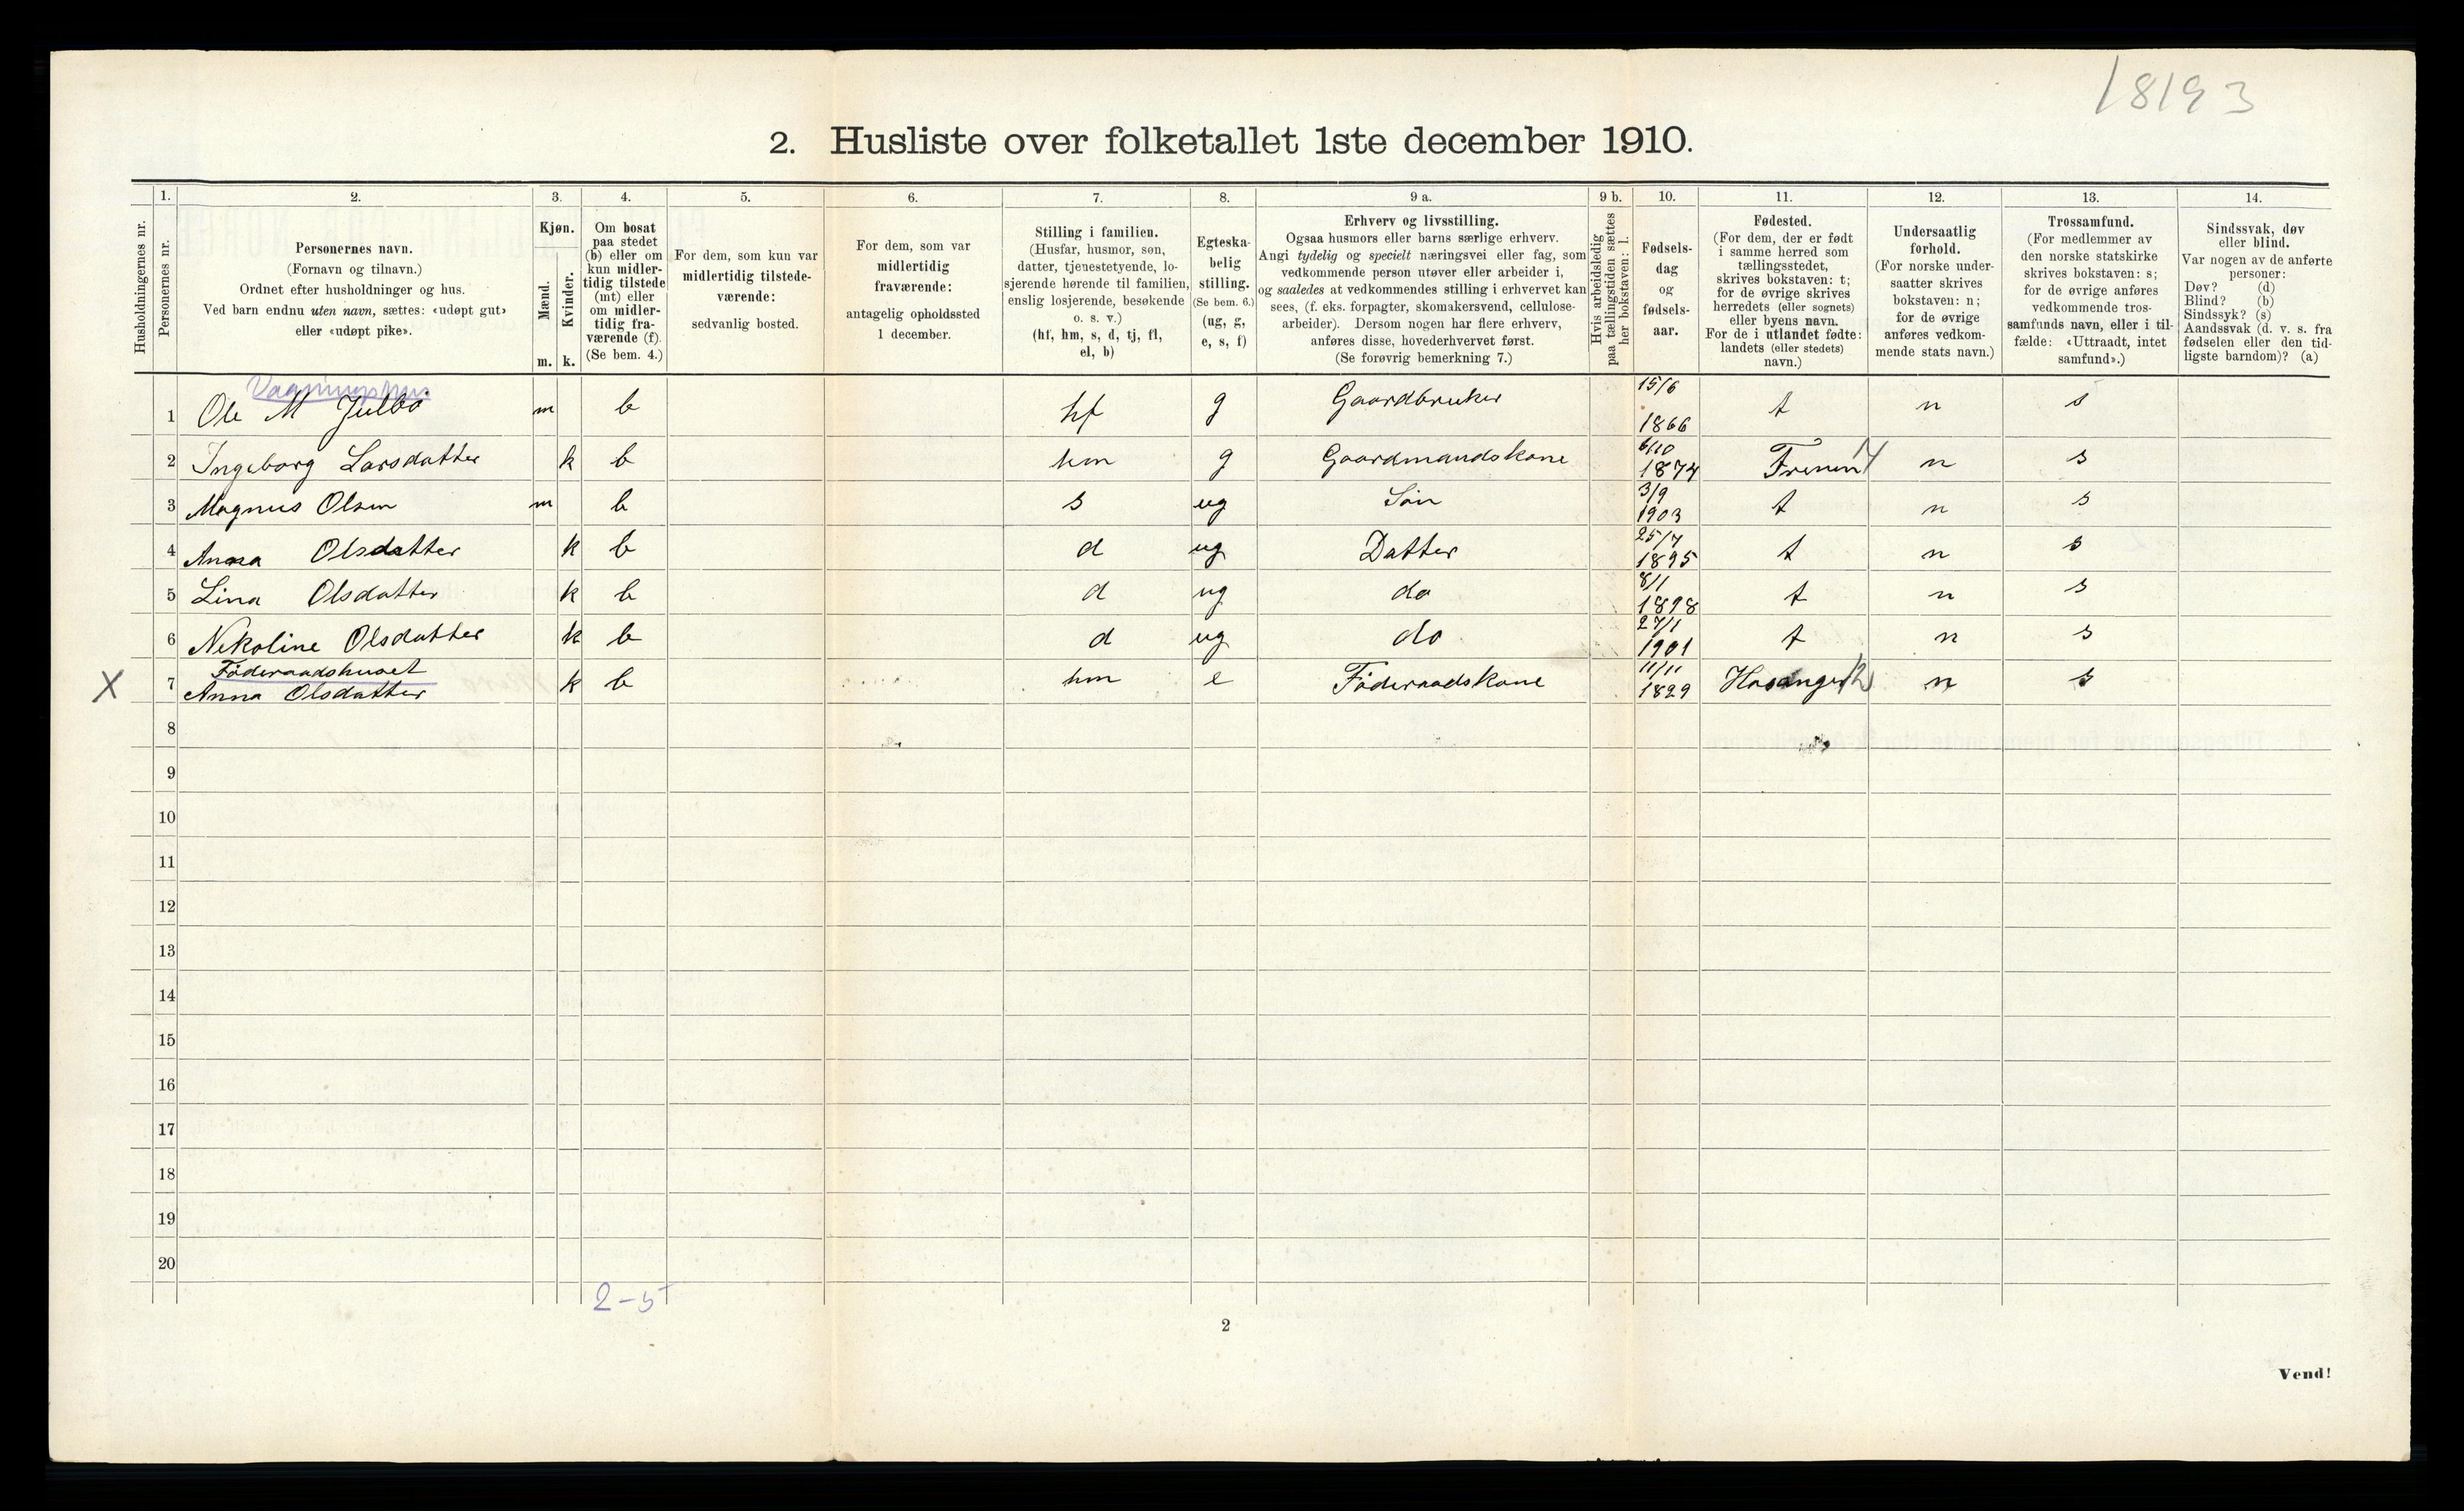 18193
2. Husliste over folketallet 1ste december 1910.
Husholdningernes nr.
1.
Personernes nr.
2.
Personernes navn.
(Fornavn og tilnavn.)
Ordnet efter husholdninger og hus.
Ved barn endnu uten navn, sættes: «udøpt gut»
eller «udøpt pike».
3.
Kjøn.
Mænd.
Kvinder.
m. k.
4.
Om bosat
paa stedet
(b) eller om
kun midler-
tidig tilstede
(mt) eller
om midler-
tidig fra-
værende (f).
(Se bem. 4.)
5.
For dem, som kun var
midlertidig tilstede-
værende:
sedvanlig bosted.
6.
For dem, som var
midlertidig
fraværende:
antagelig opholdssted
1 december.
7.
Stilling i familien.
(Husfar, husmor, søn,
datter, tjenestetyende, lo-
sjerende hørende til familien,
enslig losjerende, besøkende
o. s. v.)
(hf, hm, s, d, tj, fl,
el, b)
8.
Egteska-
belig
stilling.
(Se bem. 6.)
(ug, g,
e, s, f)
9 a.
Erhverv og livsstilling.
Ogsaa husmors eller barns særlige erhverv.
Angi tydelig og specielt næringsvei eller fag, som
vedkommende person utøver eller arbeider i,
og saaledes at vedkommendes stilling i erhvervet kan
sees, (f. eks. forpagter, skomakersvend, cellulose-
arbeider). Dersom nogen har flere erhverv,
anføres disse, hovederhvervet først.
(Se forøvrig bemerkning 7.)
9 b.
Hvis arbeidsledig
paa tællingstiden sættes
her bokstaven: l.
10.
Fødsels-
dag
og
fødsels-
aar.
11.
Fødested.
(For dem, der er født
i samme herred som
tællingsstedet,
skrives bokstaven: t;
for de øvrige skrives
herredets (eller sognets)
eller byens navn.
For de i utlandet fødte:
landets (eller stedets)
navn.)
12.
Undersaatlig
forhold.
(For norske under-
saatter skrives
bokstaven: n;
for de øvrige
anføres vedkom-
mende stats navn.)
13.
Trossamfund.
(For medlemmer av
den norske statskirke
skrives bokstaven: s;
for de øvrige anføres
vedkommende tros-
samfunds navn, eller i til-
fælde: «Uttraadt, intet
samfund».)
14.
Sindssvak, døv
eller blind.
Var nogen av de anførte
personer:
Døv? (d)
Blind? (b)
Sindssyk? (s)
Aandssvak (d. v. s. fra
fødselen eller den tid-
ligste barndom)? (a)
1 Ole M Julbø m b hf g Gaardbruker 15/6 1866 t n s
2 Ingeborg Larsdatter k b hm g Gaardmandskone 6/10 1874 n s
3 Magnus Olsen m b s ug Søn 3/9 1903 t n s
4 Anna Olsdatter k b d ug Datter 25/7 1895 t n s
5 Lina Olsdatter k b d ug do 8/1 1898 t n s
6 Nekoline Olsdatter k b d ug do 27/1 1901 t n s
Föderaadshuset
X 7 Anna Olsdatter k b hm e Föderaadskone 11/11 1829 n s
8
9
10
11
12
13
14
15
16
17
18
19
20
2-5
2
Vend!